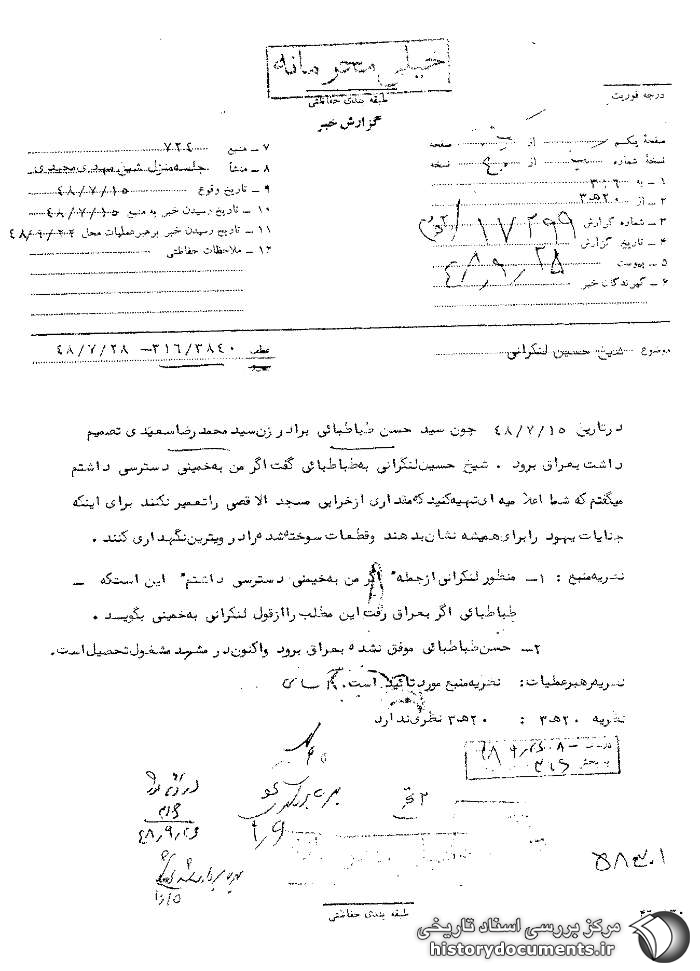 خیلی محرمانه
طبقه بندی حفاظتی
گزارش خبر
درجه فوریت
صفحهٔ یکم از صفحه
نسخهٔ شماره از نسخه
۱ـ به ۳۱۶
۲ـ از ۲۰هـ۳
۳ـ شماره گزارش ۱۷۲۹۹
۴ـ تاریخ گزارش ۴۸/۹/۲۵
۵ـ پیوست
۶ـ گیرندگان خبر
۷ـ منبع ۷۲۴
۸ـ منشأ جلسه منزل شیخ مهدی مجیدی
۹ـ تاریخ وقوع ۴۸/۷/۱۵
۱۰ـ تاریخ رسیدن خبر به منبع ۴۸/۷/۱۵
۱۱ـ تاریخ رسیدن خبر برهبرعملیات محل ۴۸/۹/۲۲
۱۲ـ ملاحظات حفاظتی
موضوع شیخ حسین لنکرانی
عطف ۳۱۶/۳۸۴۰ـ ۴۸/۷/۲۸
درتاریخ ۴۸/۷/۱۵ چون سید حسن طباطبائی برادرزن سید محمدرضا سعیدی تصمیم
داشت بعراق برود . شیخ حسین لنکرانی به طباطبائی گفت اگر من به خمینی دسترسی داشتم
میگفتم که شما اعلامیه ای تهیه کنید که مقداری ازخرابی مسجد الاقصی راتعمیر نکنند برای اینکه
جنایات یهود رابرای همیشه نشان بدهند وقطعات سوخته شده رادر ویترین نگهداری کنند .
نظریه منبع : ۱ـ منظور لنکرانی ازجمله" اگر من به خمینی دسترسی داشتم" این است که ـ
طباطبائی اگر بعراق رفت این مطلب راازقول لنکرانی به خمینی بگوید .
۲ـ حسن طباطبائی موفق نشده بعراق برود واکنون در مشهد مشغول تحصیل است .
نظریه رهبرعملیات: نظریه منبع مورد تائید است.
نظریه ۲۰هـ۳ : ۲۰هـ۳ نظری ندارد
۳۱۶
۴۸/۹/۲۶
طبقه بندی حفاظتی
مرکز بررسی اسناد تاریخی
historydocuments.ir